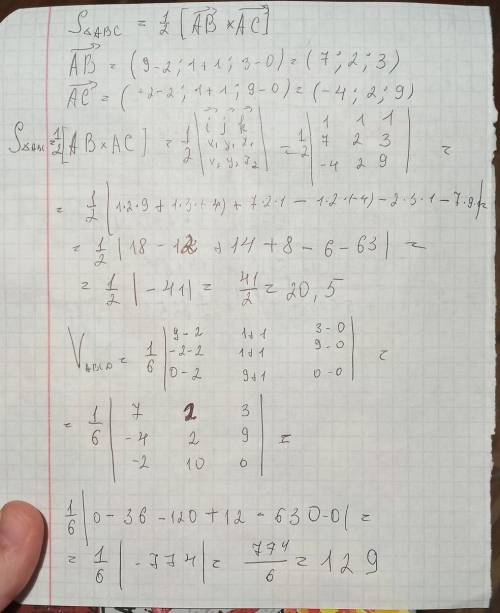 S△ABC = 1/2 [AB × AC]
AB = (9-2; 1+1; 3-0) = (7; 2; 3)
AC = (-2-2; 1+1; 9-0) = (-4; 2; 9)
S△ABC = 1/2 [AB × AC] = 1/2 | i j k | = 1/2 | 1 1 1 | =
x₁ y₁ z₁ | 7 2 3
x₂ y₂ z₂ | -4 2 9
= 1/2 |1·2·9 + 1·3·(-4) + 7·2·1 - 1·2·(-4) - 2·3·1 - 7·9·1| =
= 1/2 |18 - 12 + 14 + 8 - 6 - 63| =
= 1/2 |-41| = 41/2 = 20,5
V_ABCD = 1/6 | 9-2 1+1 3-0 | =
-2-2 1+1 9-0
0-2 9+1 0-0
= 1/6 | 7 2 3 | =
-4 2 9
-2 10 0
1/6 |0 - 36 - 120 + 12 - 630 - 0| =
= 1/6 |-774| = 774/6 = 129